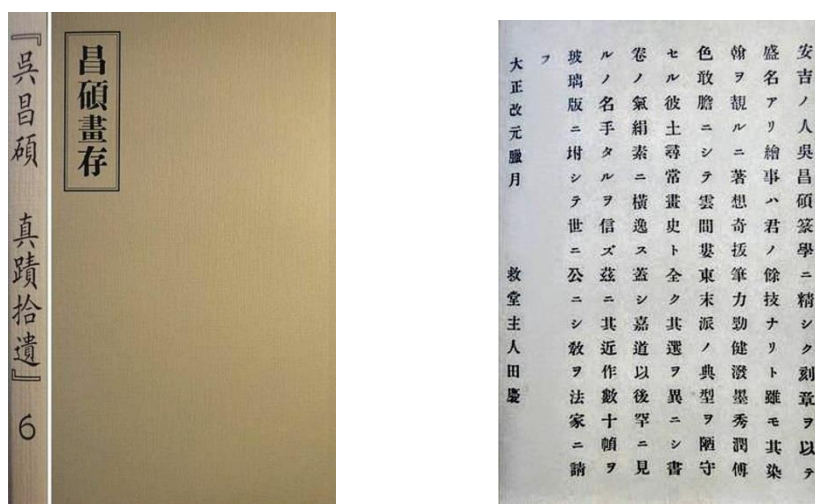 『呉昌碩 真蹟拾遺』6
昌碩畫存
安吉ノ人吳昌碩篆學ニ精シク刻章ヲ以テ
盛名アリ繪事ハ君ノ餘技ナリト雖モ其染
翰ヲ覩ルニ著想奇拔筆力勁健潑墨秀潤傅
色敢膽ニシテ雲間婁東末派ノ典型ヲ陋守
セル彼土尋常畫史ト全ク其選ヲ異ニシ書
卷ノ氣絹素ニ橫逸ス蓋シ嘉道以後罕ニ見
ルノ名手タルヲ信ズ茲ニ其近作數十幀ヲ
玻璃版ニ坿シテ世ニ公ニシ敎ヲ法家ニ請
フ
大正改元臘月 救堂主人田慶